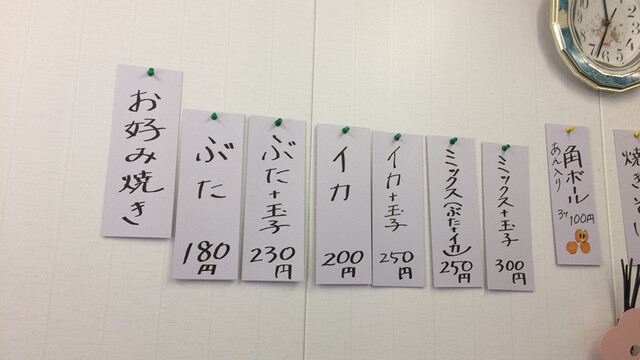 お好み焼き
ぶた
180円
ぶた+玉子
230円
イカ
200円
イカ+玉子
250円
ミックス(ぶた+イカ)
250円
ミックス+玉子
300円
角ボール
あん入り
3ヶ100円
焼きそ